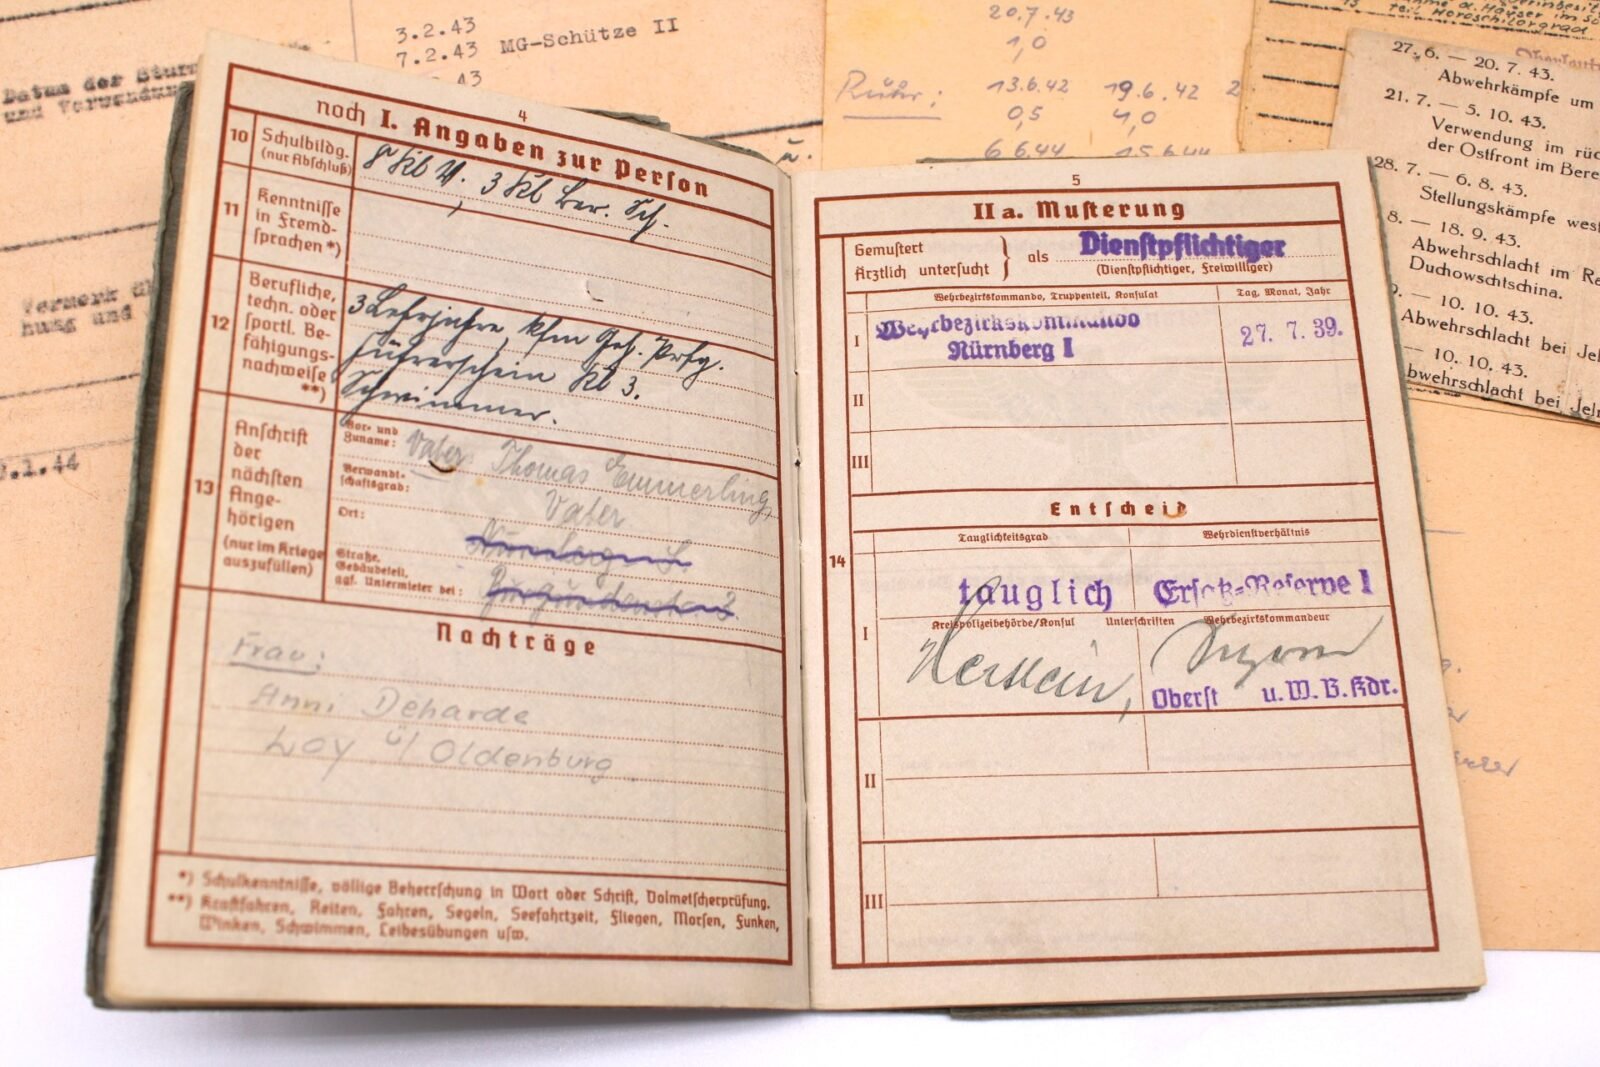 3.2.43
7.2.43 MG-Schütze II
43
Datum der Sturm
und Verwendun
Vermerk
hung und
.1.44
20.7.43
1,0
Ruhr: 13.6.42 19.6.42 2
0,5 4,0
6.6.44 15.6.44
teil Woroschilowgrad
27. 6. — 20. 7. 43.
Abwehrkämpfe um
21. 7. — 5. 10. 43.
Verwendung im rüc
der Ostfront im Bere
28. 7. — 6. 8. 43.
Stellungskämpfe west
8. — 18. 9. 43.
Abwehrschlacht im Ra
Duchowschtschina.
. — 10. 10. 43.
Abwehrschlacht bei Jel
— 10. 10. 43.
bwehrschlacht bei Jeln
4
noch I. Angaben zur Person
10 Schulbildg.
(nur Abschluß)
8 Kl V. 3 Kl Ber. Sch.
11 Kenntnisse
in Fremd-
sprachen *)
12 Berufliche,
techn. oder
sportl. Be-
fähigungs-
nachweise
**)
3 Lehrjahre, kfm Geh. Prfg.
Führerschein Kl 3.
Schwimmer.
13 Anschrift
der
nächsten
Ange-
hörigen
(nur im Kriege
auszufüllen)
Vor- und
Zuname:
Vater Thomas Emmerling,
Verwandt-
schaftsgrad:
Vater
Ort:
Straße,
Gebäudeteil,
ggf. Untermieter bei:
Nachträge
Frau:
Anni Deharde
Loy ü/ Oldenburg
*) Schulkenntnisse, völlige Beherrschung in Wort oder Schrift, Dolmetscherprüfung.
**) Kraftfahren, Reiten, Fahren, Segeln, Seefahrtzeit, Fliegen, Morsen, Funken,
Winken, Schwimmen, Leibesübungen usw.
5
IIa. Musterung
Gemustert
Ärztlich untersucht } als Dienstpflichtiger
(Dienstpflichtiger, Freiwilliger)
Wehrbezirkskommando, Truppenteil, Konsulat Tag, Monat, Jahr
I Wehrbezirkskommando
Nürnberg I 27. 7. 39.
II
III
Entscheid
Tauglichkeitsgrad Wehrdienstverhältnis
14
tauglich Ersatz-Reserve I
I Kreispolizeibehörde/Konsul Unterschriften Wehrbezirkskommandeur
Oberst u.W.B.Kdr.
II
III